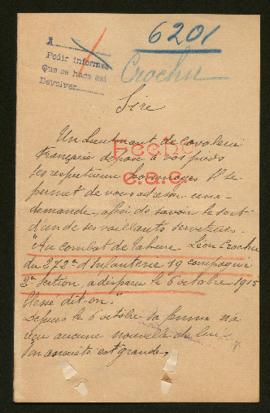 6201
A
Pedir informes
Que se haga así
Devolver
Crochu
Sire
Un Lieutenant de cavalerie
Française dépose à vos pieds
ses respectueux hommages Il se
permet de vous adresser une
demande, afin de savoir le sort
d'un de ses vaillants serviteurs.
Hecho
c.a.c.
"Au combat de Tahure Léon Crochu
du 272e d'Infanterie 19 compagnie
2e Section, a disparu le 6 octobre 1915
blessé dit-on"
Depuis le 6 octobre sa femme n'a
reçu aucune nouvelle de lui
son anxiété est grande,